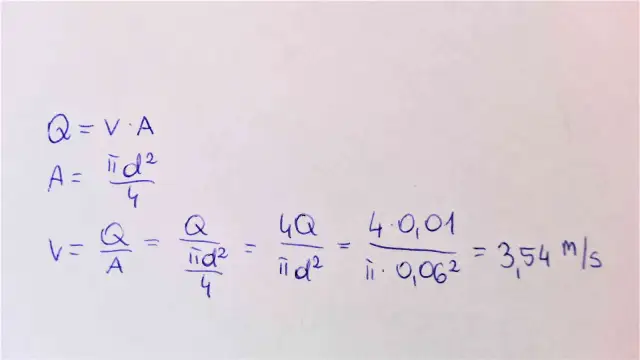 Q = V · A
A = πd²/4
V = Q/A = Q/(πd²/4) = 4Q/πd² = 4·0,01/π·0,06² = 3,54 m/s